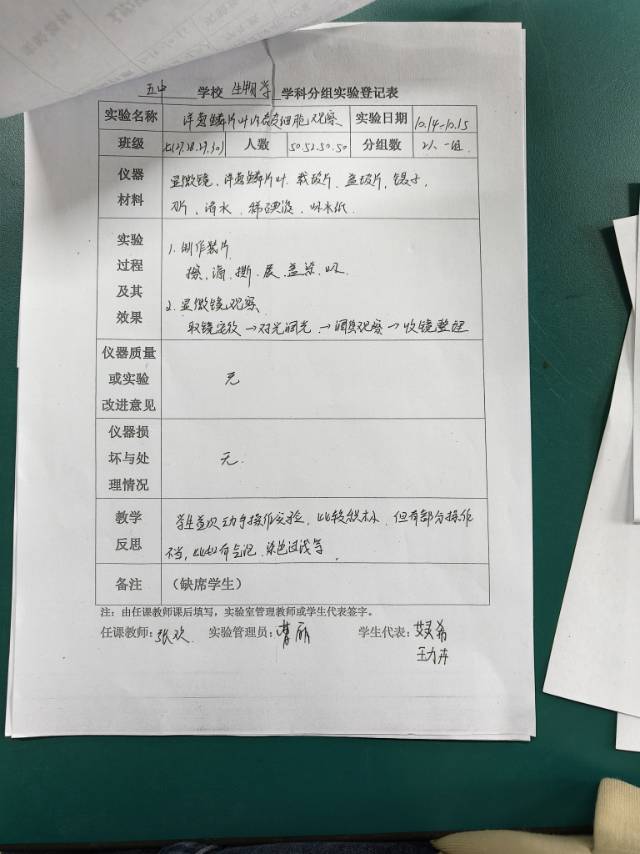 五中 学校 生物学 学科分组实验登记表
实验名称 洋葱鳞片叶内表皮细胞观察 实验日期 10.14-10.15
班级 七(27.28.29.30) 人数 50.52.50.50 分组数 2人一组
仪器材料 显微镜、洋葱鳞片叶、载玻片、盖玻片、镊子、
刀片、清水、稀碘液、吸水纸
实验过程及其效果 1.制作装片
擦、滴、撕、展、盖、染、吸
2.显微镜观察
取镜安放→对光调光→调焦观察→收镜整理
仪器质量或实验改进意见 无
仪器损坏与处理情况 无
教学反思 学生首次动手操作实验,比较积极,但有部分操作
不当,比如有气泡,染色过浅等
备注 (缺席学生)
注:由任课教师课后填写,实验室管理教师或学生代表签字。
任课教师:张欢 实验管理员:曹丽 学生代表: